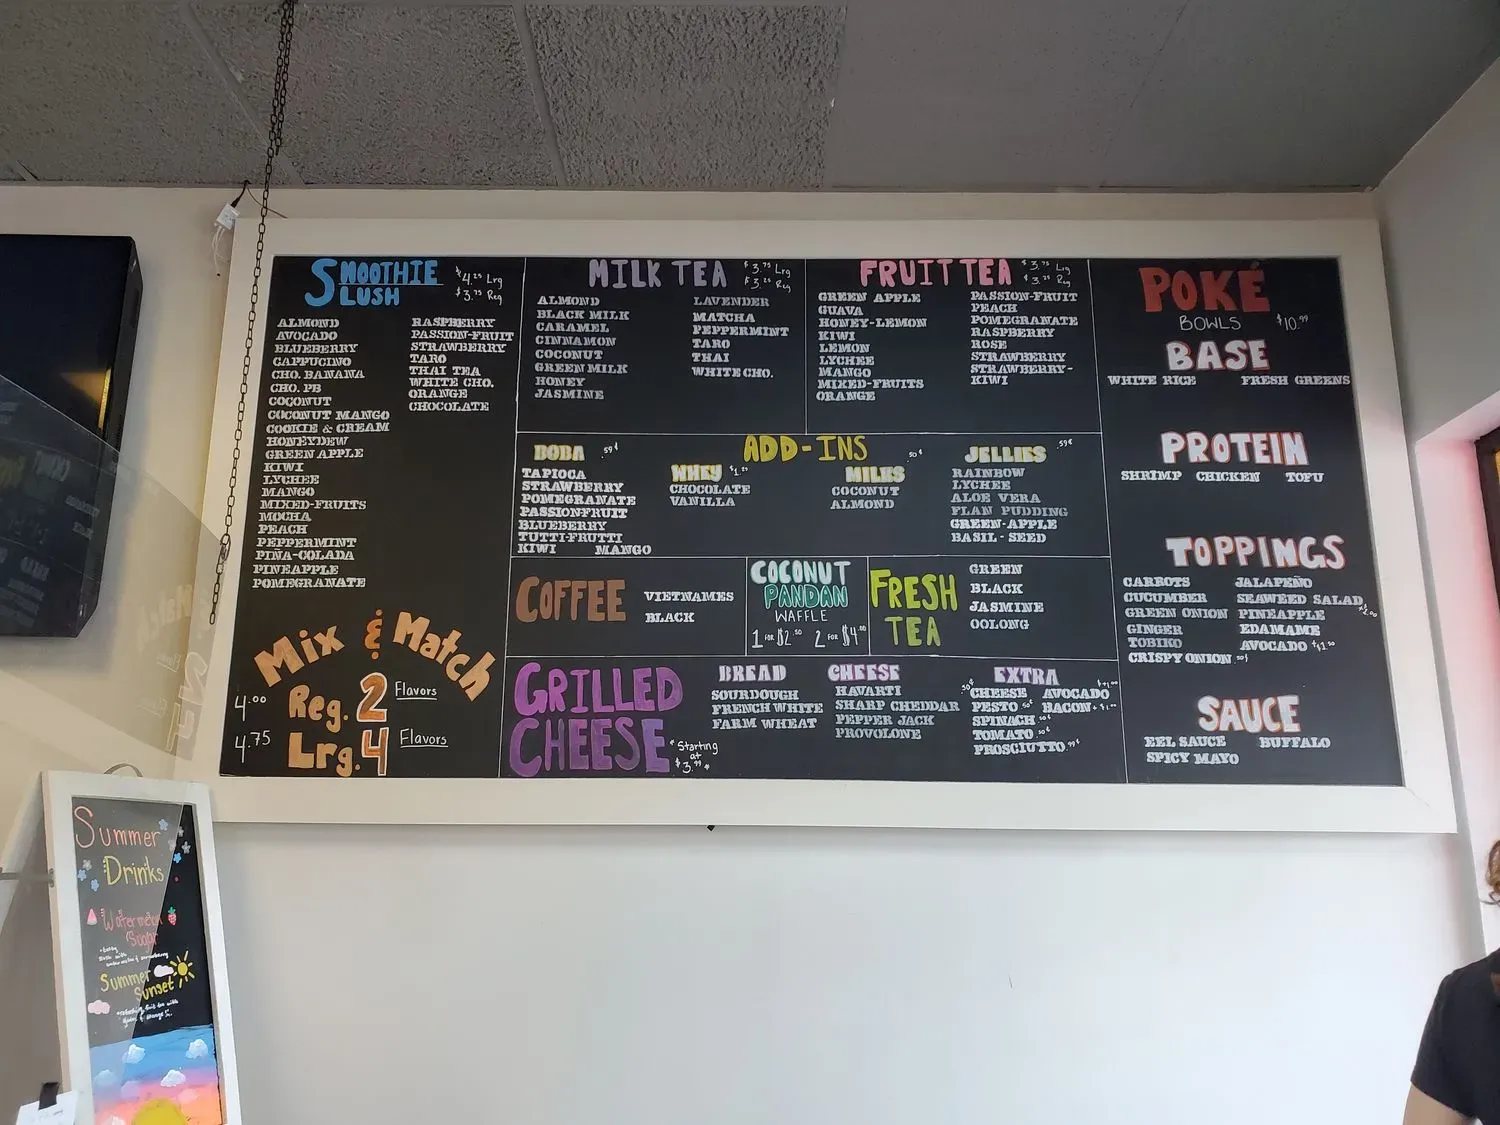 SMOOTHIE
SLUSH
$4.25 Lrg
$3.75 Reg
ALMOND
AVOCADO
BLUEBERRY
CAPPUCINO
CHO. BANANA
CHO. PB
COCONUT
COCONUT MANGO
COOKIE & CREAM
HONEYDEW
GREEN APPLE
KIWI
LYCHEE
MANGO
MIXED-FRUITS
MOCHA
PEACH
PEPPERMINT
PIÑA-COLADA
PINEAPPLE
POMEGRANATE
RASPBERRY
PASSION-FRUIT
STRAWBERRY
TARO
THAI TEA
WHITE CHO.
ORANGE
CHOCOLATE
Mix & Match
4.00 Reg. 2 Flavors
4.75 Lrg. 4 Flavors
MILK TEA
$3.75 Lrg
$3.25 Reg
ALMOND
BLACK MILK
CARAMEL
CINNAMON
COCONUT
GREEN MILK
HONEY
JASMINE
LAVENDER
MATCHA
PEPPERMINT
TARO
THAI
WHITE CHO.
FRUIT TEA
$3.75 Lrg
$3.25 Reg
GREEN APPLE
GUAVA
HONEY-LEMON
KIWI
LEMON
LYCHEE
MANGO
MIXED-FRUITS
ORANGE
PASSION-FRUIT
PEACH
POMEGRANATE
RASPBERRY
ROSE
STRAWBERRY
STRAWBERRY-
KIWI
ADD-INS
BOBA .59¢
TAPIOCA
STRAWBERRY
POMEGRANATE
PASSIONFRUIT
BLUEBERRY
TUTTI-FRUTTI
KIWI MANGO
WHEY
CHOCOLATE
VANILLA
MILKS 50¢
COCONUT
ALMOND
JELLIES .59¢
RAINBOW
LYCHEE
ALOE VERA
FLAN PUDDING
GREEN-APPLE
BASIL-SEED
COFFEE
VIETNAMES
BLACK
COCONUT
PANDAN
WAFFLE
1 FOR $2.50 2 FOR $4.00
FRESH
TEA
GREEN
BLACK
JASMINE
OOLONG
GRILLED
CHEESE
*Starting
at
$3.99*
BREAD
SOURDOUGH
FRENCH WHITE
FARM WHEAT
CHEESE
HAVARTI
SHARP CHEDDAR
PEPPER JACK
PROVOLONE
EXTRA
.50¢ CHEESE
PESTO 50¢
SPINACH 50¢
TOMATO .50¢
PROSCIUTTO 99¢
AVOCADO
BACON
POKÉ
BOWLS $10.99
BASE
WHITE RICE FRESH GREENS
PROTEIN
SHRIMP CHICKEN TOFU
TOPPINGS
CARROTS
CUCUMBER
GREEN ONION
GINGER
TOBIKO
CRISPY ONION 50¢
JALAPEÑO
SEAWEED SALAD
PINEAPPLE
EDAMAME
AVOCADO +$1.50
SAUCE
EEL SAUCE BUFFALO
SPICY MAYO
Summer
Drinks
Watermelon
Sugar
Summer
Sunset